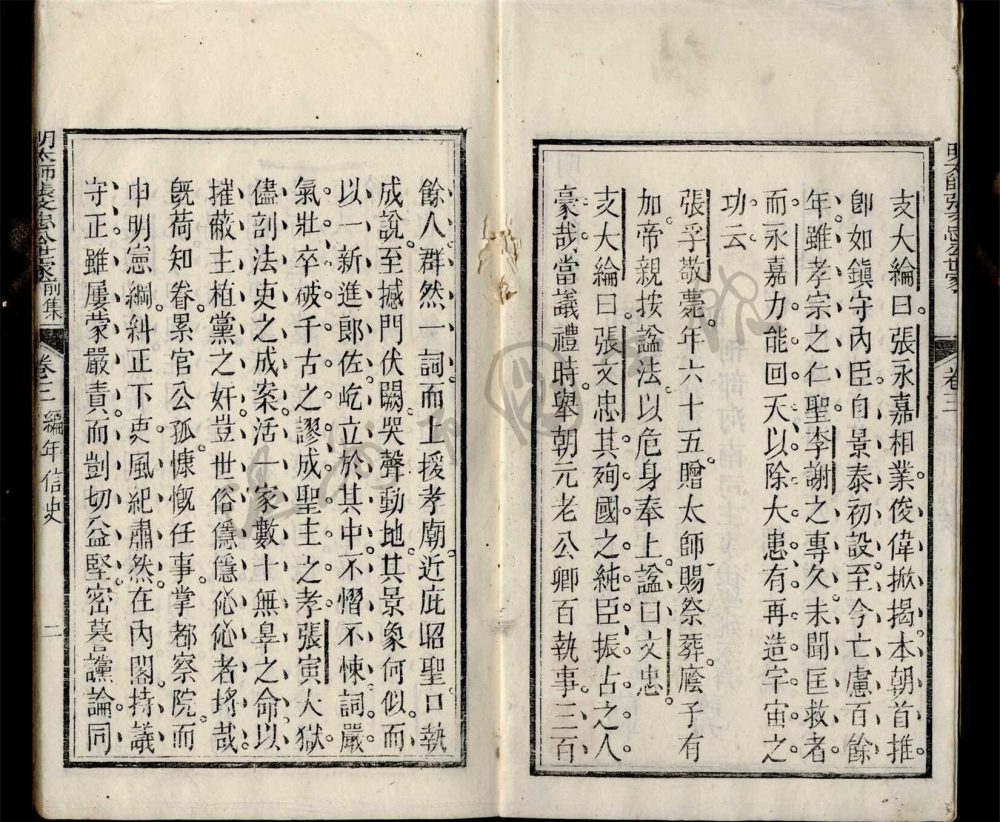 支大綸曰張永嘉相業俊偉掀揭本朝首推
卽如鎮守內臣自景泰初設至今亡慮百餘
年雖孝宗之仁聖李謝之專久未聞匡救者
而永嘉力能回天以除大患有再造宇宙之
功云
張孚敬薨年六十五贈太師賜祭葬廕子有
加帝親按謚法以危身奉上謚曰文忠
支大綸曰張文忠其殉國之純臣振古之人
豪哉當議禮時舉朝元老公卿百執事三百
明太師張文忠公世家
卷三
餘人群然一詞而上援孝廟近庇昭聖口執
成說至撼門伏闕哭聲動地其景象何似而
以一新進郎佐屹立於其中不慴不悚詞嚴
氣壯卒破千古之謬成聖主之孝張寅大獄
儘剖法吏之成案活一家數十無辠之命以
摧蔽主植黨之奸豈世俗隱隱伈伈者埓哉
旣荷知眷累官公孤慷慨任事掌都察院而
申明憲綱糾正下吏風紀肅然在內閣持議
守正雖屢蒙嚴責而剴切益堅密莫讜論同
明太師張文忠公世家前集
卷三
編年信史
二